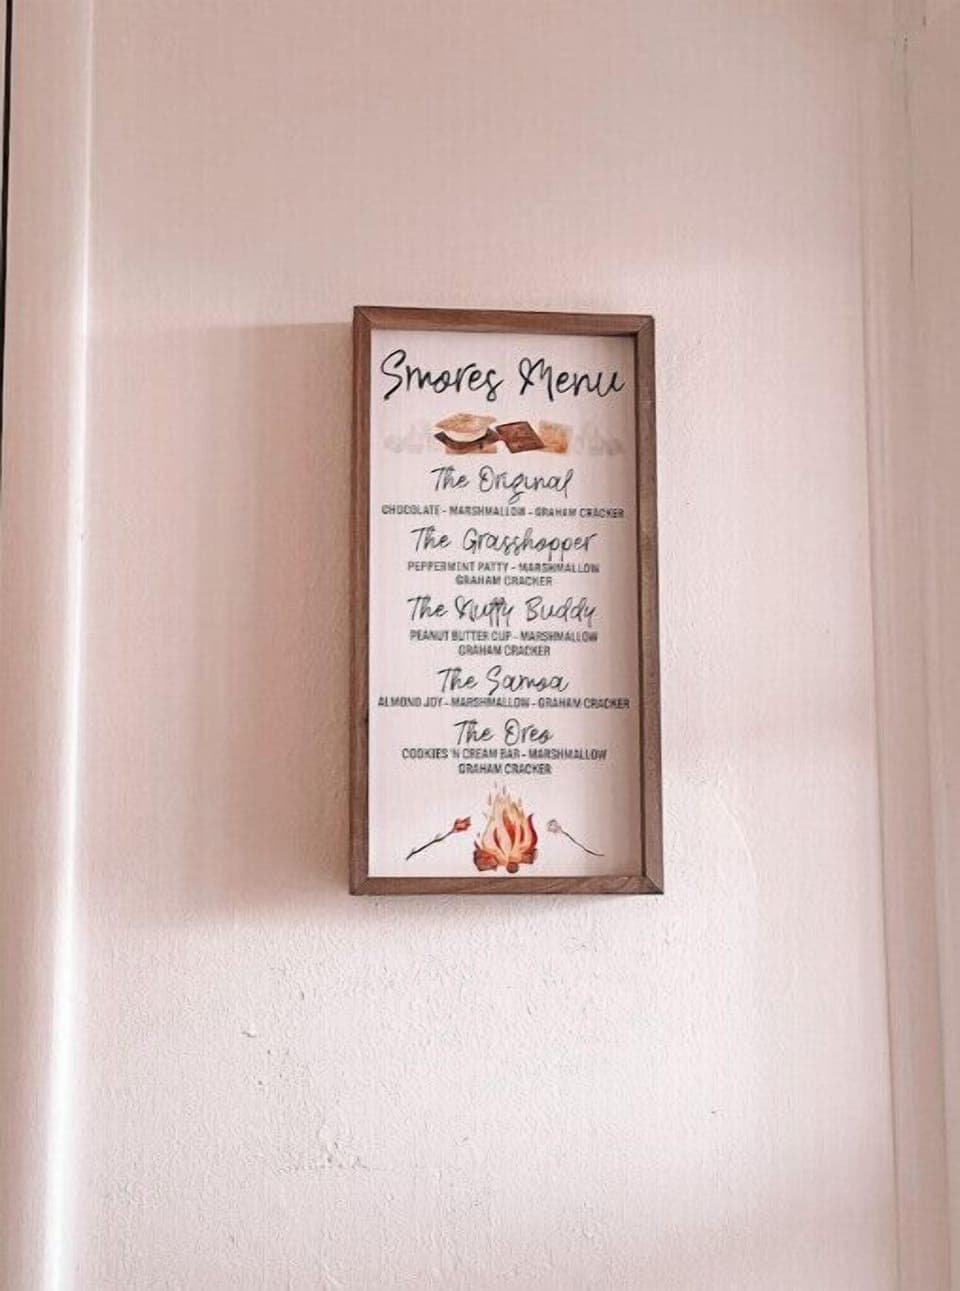 Smores Menu
The Original
CHOCOLATE - MARSHMALLOW - GRAHAM CRACKER
The Grasshopper
PEPPERMINT PATTY - MARSHMALLOW
GRAHAM CRACKER
The Nutty Buddy
PEANUT BUTTER CUP - MARSHMALLOW
GRAHAM CRACKER
The Samoa
ALMOND JOY - MARSHMALLOW - GRAHAM CRACKER
The Oreo
COOKIES 'N CREAM BAR - MARSHMALLOW
GRAHAM CRACKER